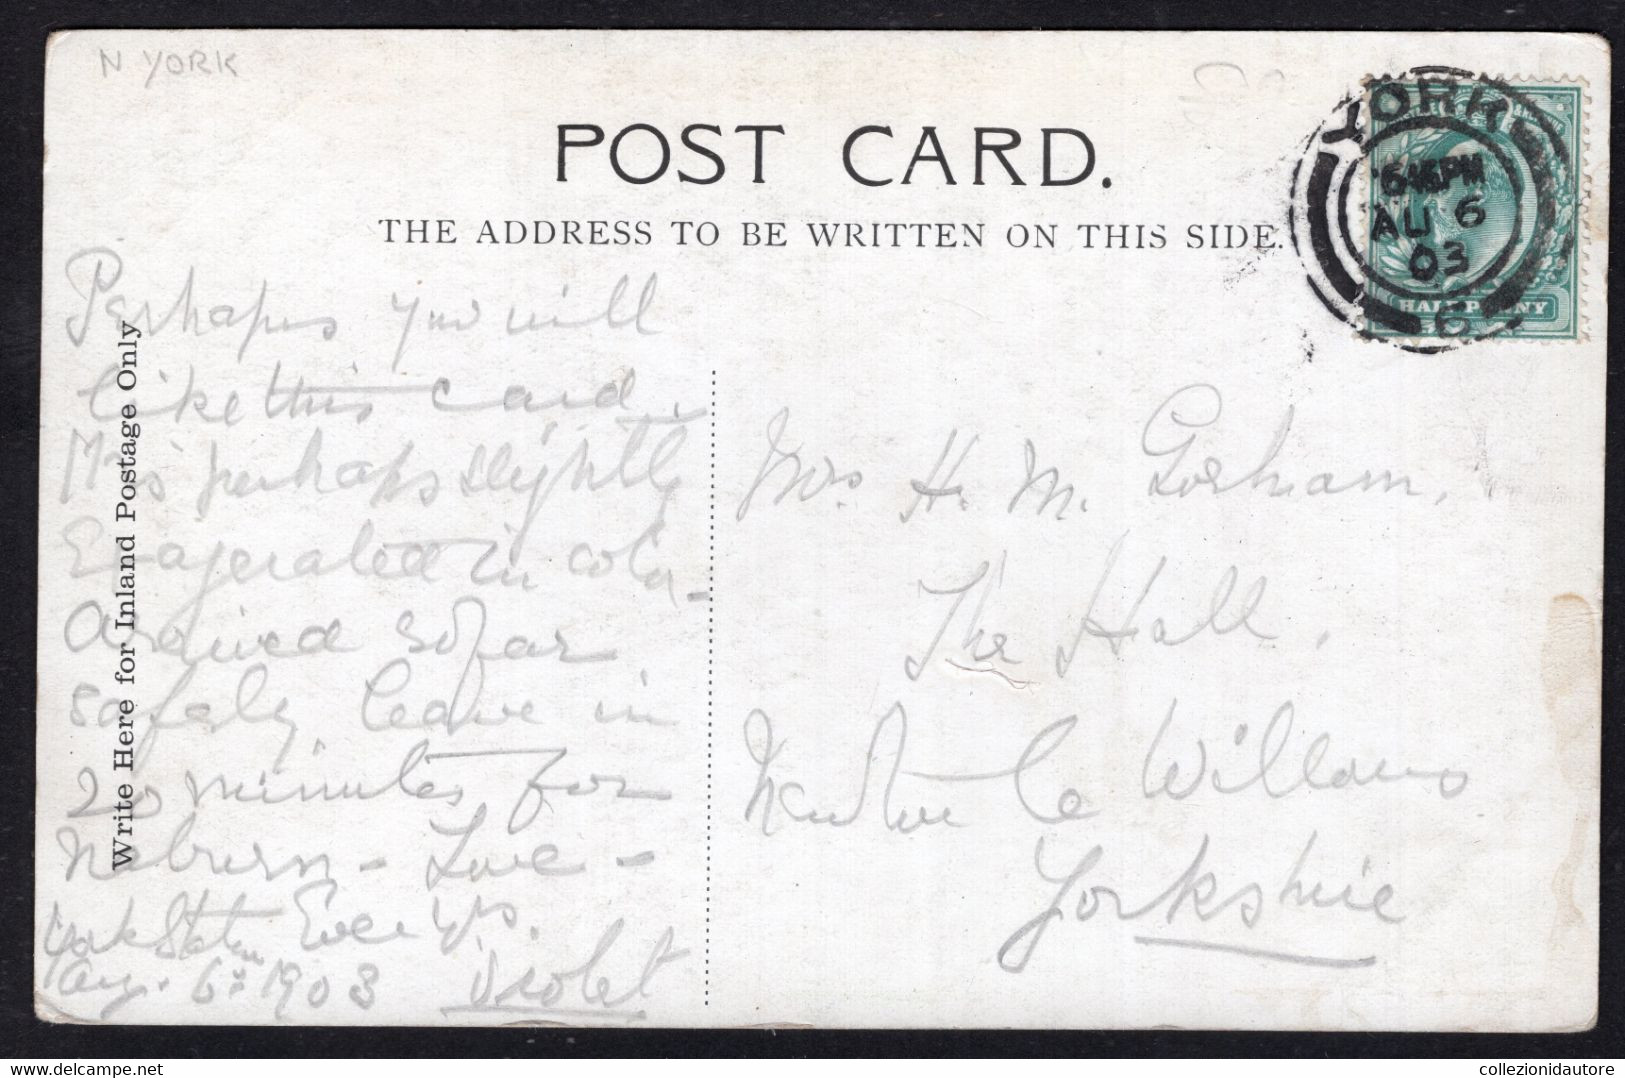 N YORK
POST CARD.
THE ADDRESS TO BE WRITTEN ON THIS SIDE.
YORK
6 45 PM
AU 6
03
6
HALFPENNY
Write Here for Inland Postage Only
Perhaps you will
like this card.
It is perhaps slightly
Exagerated in color
Arrived so far
safely leave in
20 minutes for
Naburn - Love -
York Station Ever yrs.
Aug. 6th 1903 Violet
Mrs. H. M. Gorham.
The Hall.
Newton Le Willows
Yorkshire
collezionidautore